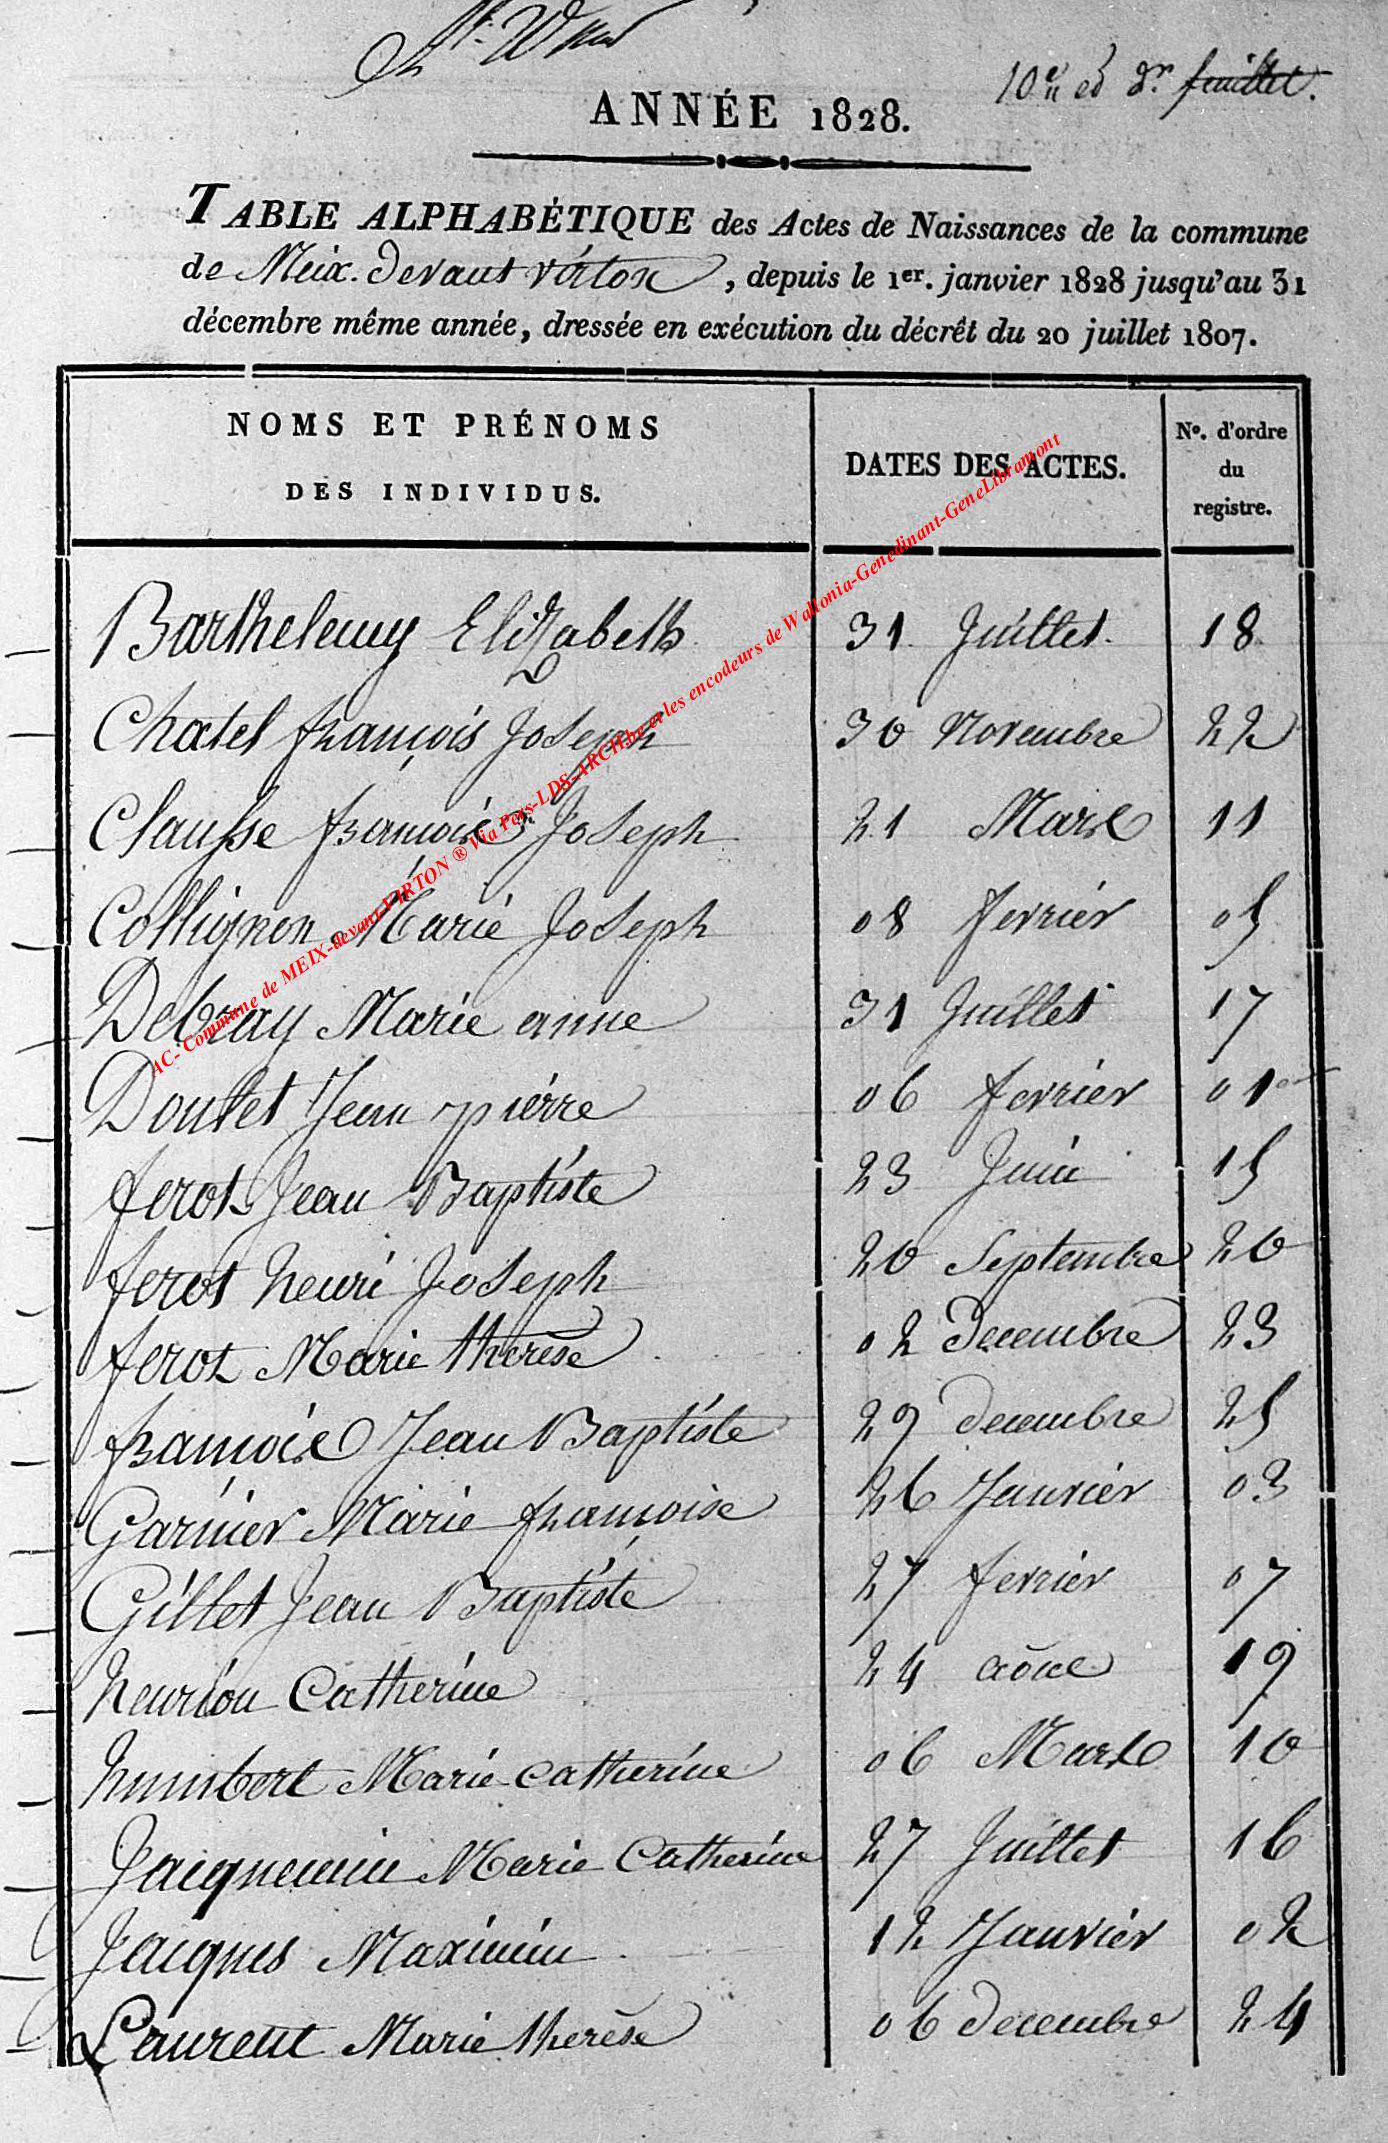 10e et dr feuillet.
ANNÉE 1828.
TABLE ALPHABÉTIQUE des Actes de Naissances de la commune
de Meix-devant virton, depuis le 1er. janvier 1828 jusqu'au 31
décembre même année, dressée en exécution du décrêt du 20 juillet 1807.
NOMS ET PRÉNOMS
DES INDIVIDUS.
DATES DES ACTES.
No. d'ordre
du
registre.
Barthelemy Elizabeth 31 Juillet. 18
Chatel françois Joseph 30 Novembre 22
Clausse françois Joseph 21 Mars 11
Collignon Marie Joseph 08 fevrier 05
Debray Marie anne 31 Juillet 17
Doutet Jean pierre 06 fevrier 01
ferot Jean Baptiste 23 Juin 15
ferot henri Joseph 20 Septembre 20
ferot Marie therèse 02 Decembre 23
françois Jean Baptiste 29 decembre 25
Garnier Marie françoise 26 Janvier 03
Gillet Jean Baptiste 27 fevrier 07
henrion Catherine 24 août 19
humbert Marie catherine 06 Mars 10
Jacquemin Marie Catherine 27 Juillet 16
Jacques Maximin 12 Janvier 02
Laurent Marie therèse 06 decembre 24
AC- Commune de MEIX-devant-VIRTON ® Via Pers-LDS-ARCH.be et les encodeurs de Wallonia-Genedinant-GeneLibramont